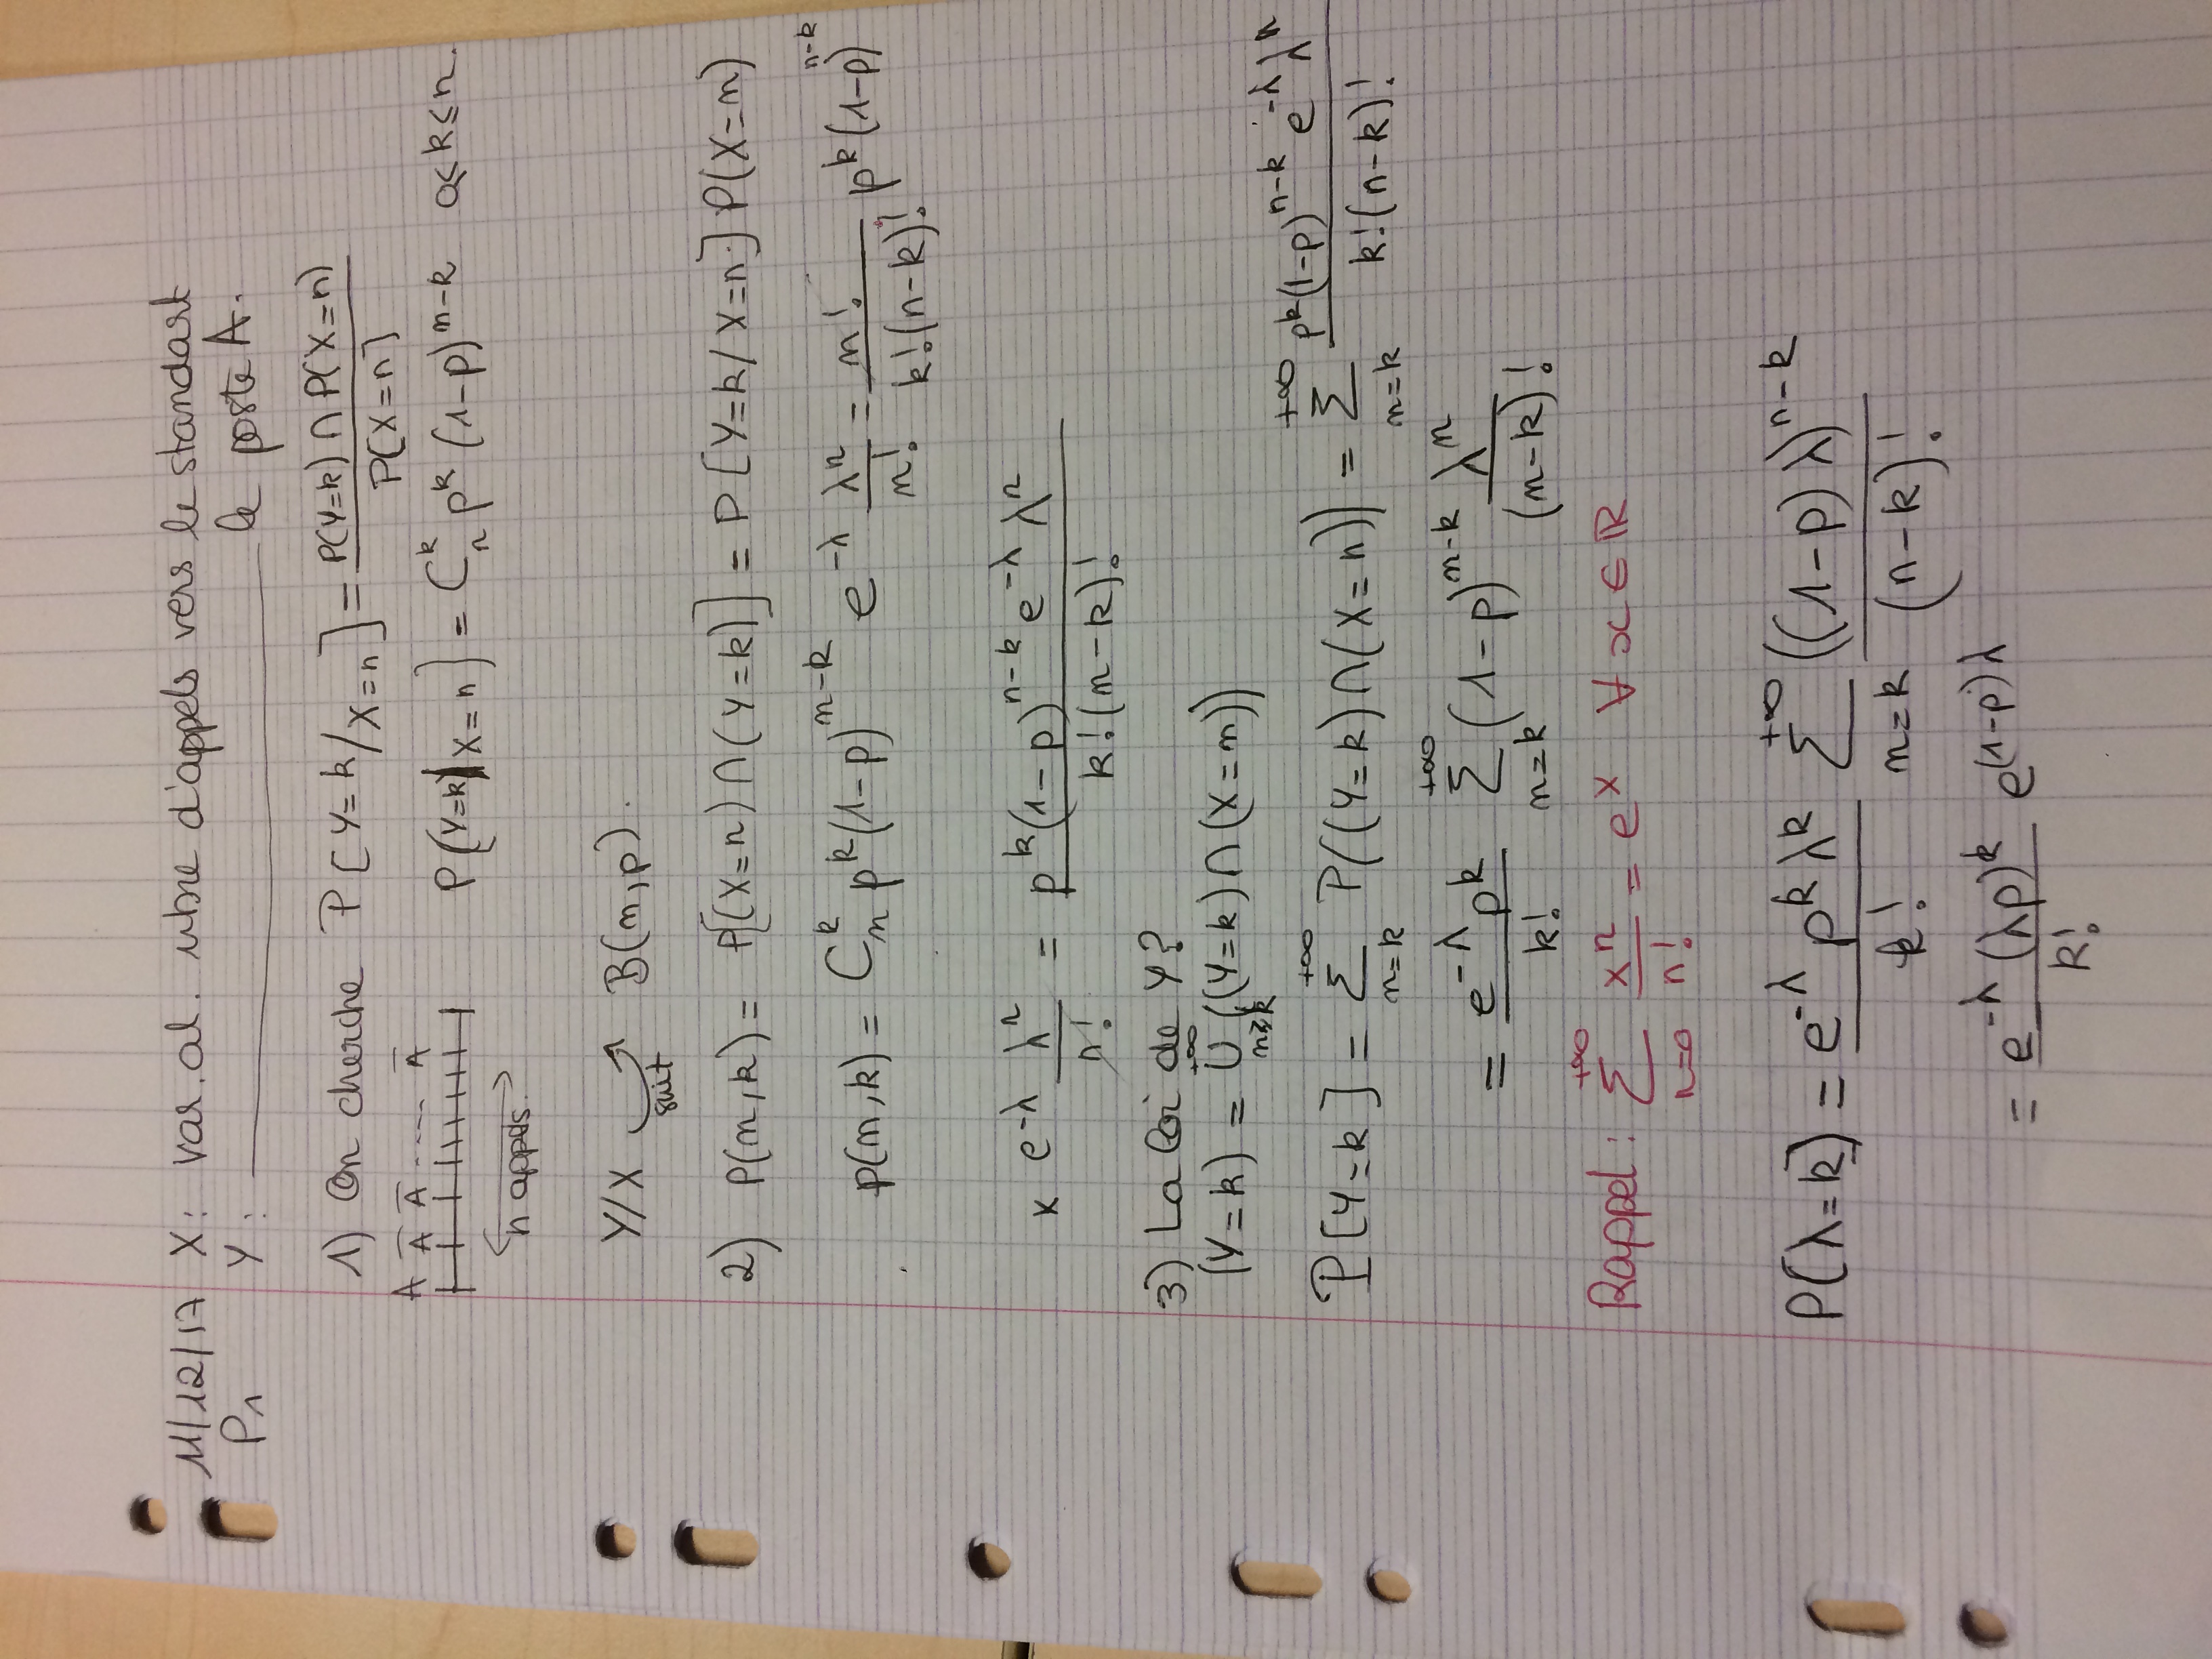 11/12/17 X: var. al. nbre d'appels vers le standart
P1 Y: ———————— le poste A.
1) On cherche P[Y=k/X=n] = P(Y=k) ∩ P(X=n) / P[X=n]
A Ā Ā ..... Ā
P[Y=k|X=n] = C_n^k p^k (1-p)^{n-k} 0≤k≤n.
n appels.
Y/X suit B(n,p).
2) P(n,k) = P[(X=n)∩(Y=k)] = P[Y=k/X=n] P(X=n)
p(n,k) = C_n^k p^k (1-p)^{n-k} e^{-λ} λ^n/n! = n!/(k!(n-k)!) p^k (1-p)^{n-k}
x e^{-λ} λ^n/n! = p^k (1-p)^{n-k} e^{-λ} λ^n / (k!(n-k)!)
3) La loi de Y?
(Y=k) = ∪_{n≥k}^{+∞} ((Y=k)∩(X=n))
P[Y=k] = Σ_{n=k}^{+∞} P((Y=k)∩(X=n)) = Σ_{n=k}^{+∞} p^k (1-p)^{n-k} e^{-λ} λ^n / (k!(n-k)!)
= e^{-λ} p^k / k! Σ_{n=k}^{+∞} (1-p)^{n-k} λ^n/(n-k)!
Rappel : Σ_{n=0}^{+∞} x^n/n! = e^x ∀ x ∈ ℝ
P(λ=k) = e^{-λ} p^k λ^k / k! Σ_{n=k}^{+∞} ((1-p)λ)^{n-k} / (n-k)!
= e^{-λ} (λp)^k / k! e^{(1-p)λ}